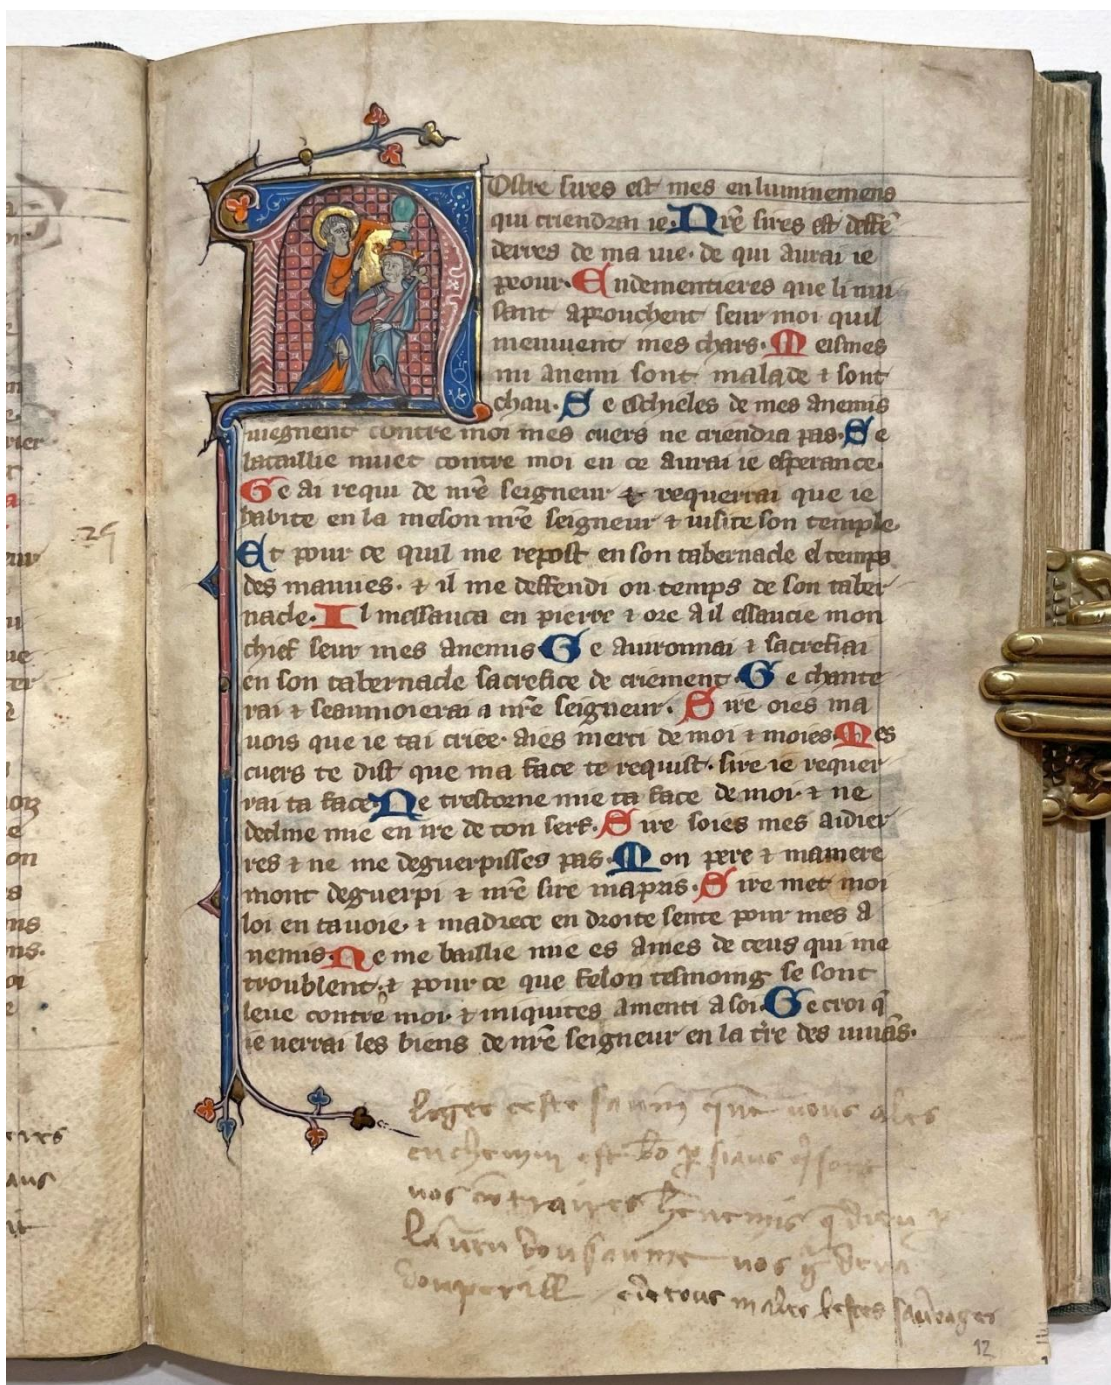 Nostre sires est mes enluminemens
qui criendrai ie. Nr̄e sires est deffē
derres de ma uie. de qui aurai ie
peour. Endementieres que li nui
sant aprouchent seur moi quil
meniuent mes chars. Meismes
mi anemi sont malade ⁊ sont
chau. Se eschieles de mes anemis
uiegnent contre moi mes cuers ne criendra pas. Se
bataillie muet contre moi en ce aurai ie esperance.
Ge ai requi de nr̄e seigneur ⁊ requerrai que ie
habite en la meson nr̄e seigneur ⁊ uisite son temple
Et pour ce quil me repost en son tabernacle el temps
des mauues. ⁊ il me deffendi ou temps de son taber
nacle. Il messauca en pierre ⁊ ore a il essaucie mon
chief seur mes anemis Ge auironnai ⁊ sacrefiai
en son tabernacle sacrefice de criement. Ge chante
rai ⁊ seaumoierai a nr̄e seigneur. Sire oies ma
uois que ie tai criee. aies merci de moi ⁊ moies. Mes
cuers te dist que ma face te requist. sire ie requer
rai ta face. Ne trestorne mie ta face de moi. ⁊ ne
decline mie en ire de ton serf. Sire soies mes aidier
res ⁊ ne me deguerpisses pas. Mon pere ⁊ ma mere
mont deguerpi ⁊ nr̄e sire ma pris. Sire met moi
loi en ta uoie. ⁊ madrece en droite sente pour mes a
nemis. Ne me baillie mie es ames de ceus qui me
troublent. ⁊ pour ce que felon tesmoing se sont
leue contre moi. ⁊ iniquites a menti a soi. Ge croi q̄
ie uerrai les biens de nr̄e seigneur en la tr̄e des uiuās.
liges ceste que vous ales
en chemin est
nos
nos
tous males bestes sauvages
12
29